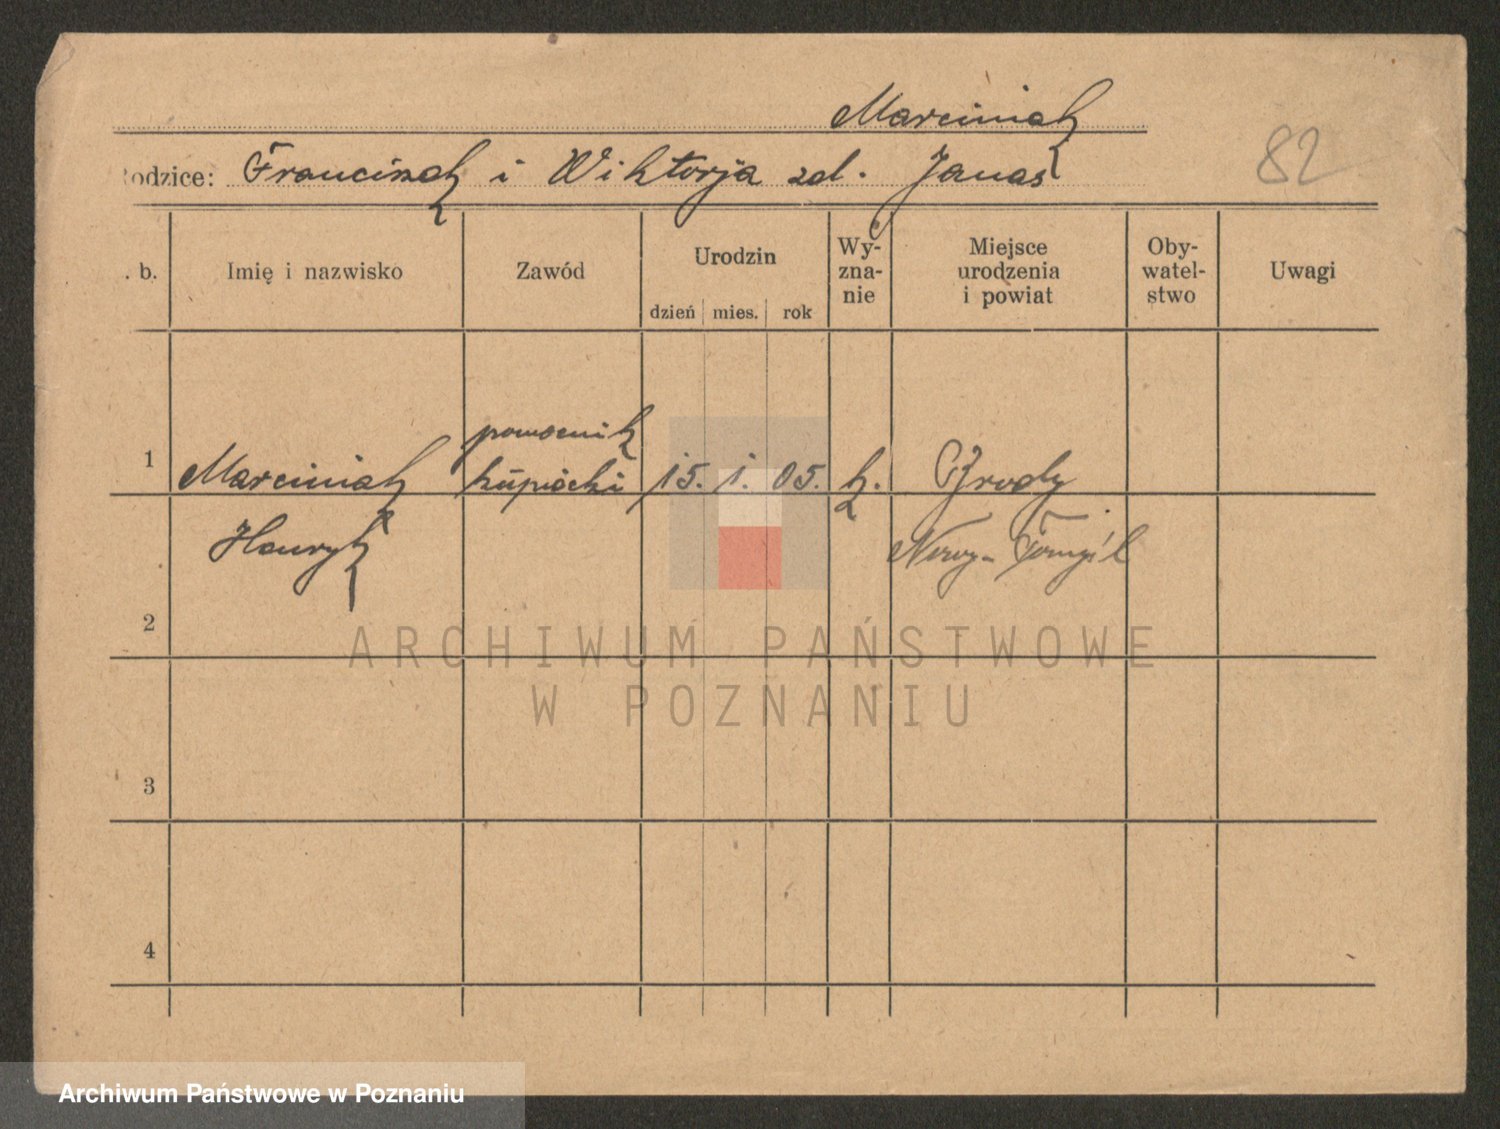 Marciniak
Rodzice: Franciszek i Wiktorja zd. Janas
82
. b.
Imię i nazwisko
Zawód
Urodzin
dzień mies. rok
Wy-
zna-
nie
Miejsce
urodzenia
i powiat
Oby-
watel-
stwo
Uwagi
1
Marciniak
Henryk
pomocnik
kupiecki
15. 1. 05.
k.
Brody
Nowy-Tomyśl
2
3
4
ARCHIWUM PAŃSTWOWE
W POZNANIU
Archiwum Państwowe w Poznaniu